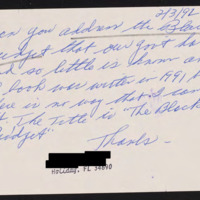 2/3/92
en you address the Black
udget that our govt has
so little is known an
book was written in 1991 b
re is no way that I can
t. The title is "The Black
udget"
Thanks -
Holiday, FL 34690